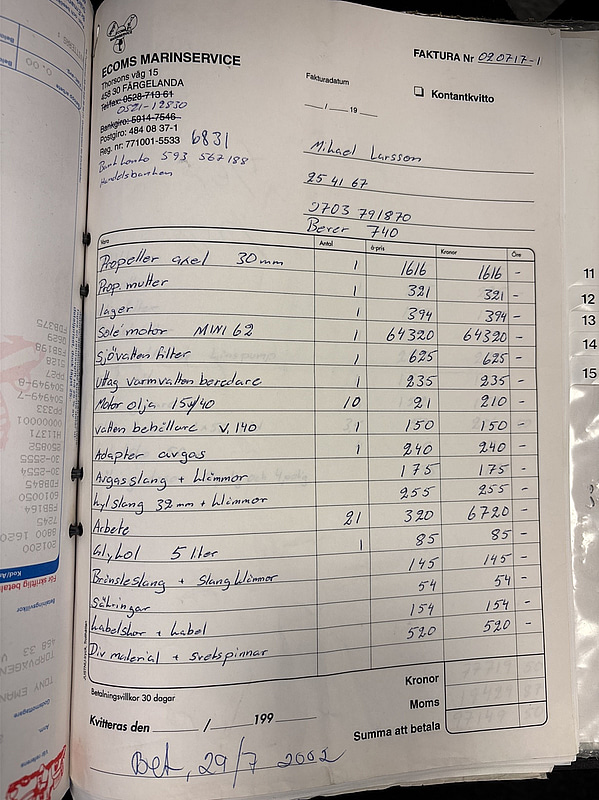 ECOMS MARINSERVICE
Thorsons väg 15
458 30 FÄRGELANDA
Tel/fax: 0528-713 61
0521-12830
Bankgiro: 5914-7546
Postgiro: 484 08 37-1
Reg. nr: 771001-5533 6831
Bankkonto 593 567 188
Handelsbanken
FAKTURA Nr 020717-1
Fakturadatum
/ 19
Kontantkvitto
Mikael Larsson
25 41 67
0703 791870
Berer 740
Vara Antal à-pris Kronor Öre
Propeller axel 30mm 1 1616 1616 -
Prop. mutter 1 321 321 -
lager 1 394 394 -
Solé motor MINI 62 1 64320 64320 -
Sjövatten filter 1 625 625 -
uttag varmvatten beredare 1 235 235 -
Motor olja 15w40 10 21 210 -
vatten behållare V, 140 1 150 150 -
Adapter avgas 1 240 240 -
Avgasslang + klämmor 175 175 -
kylslang 32mm + klämmor 255 255 -
Arbete 21 320 6720 -
Glykol 5 liter 1 85 85 -
Bränsleslang + Slangklämmor 145 145 -
Säkringar 54 54 -
kabelskor + kabel 154 154 -
Div material + svetspinnar 520 520 -
Betalningsvillkor 30 dagar
Kronor
Moms
Summa att betala
Kvitteras den / 199
Bet, 29/7 2002
11
12
13
14
15